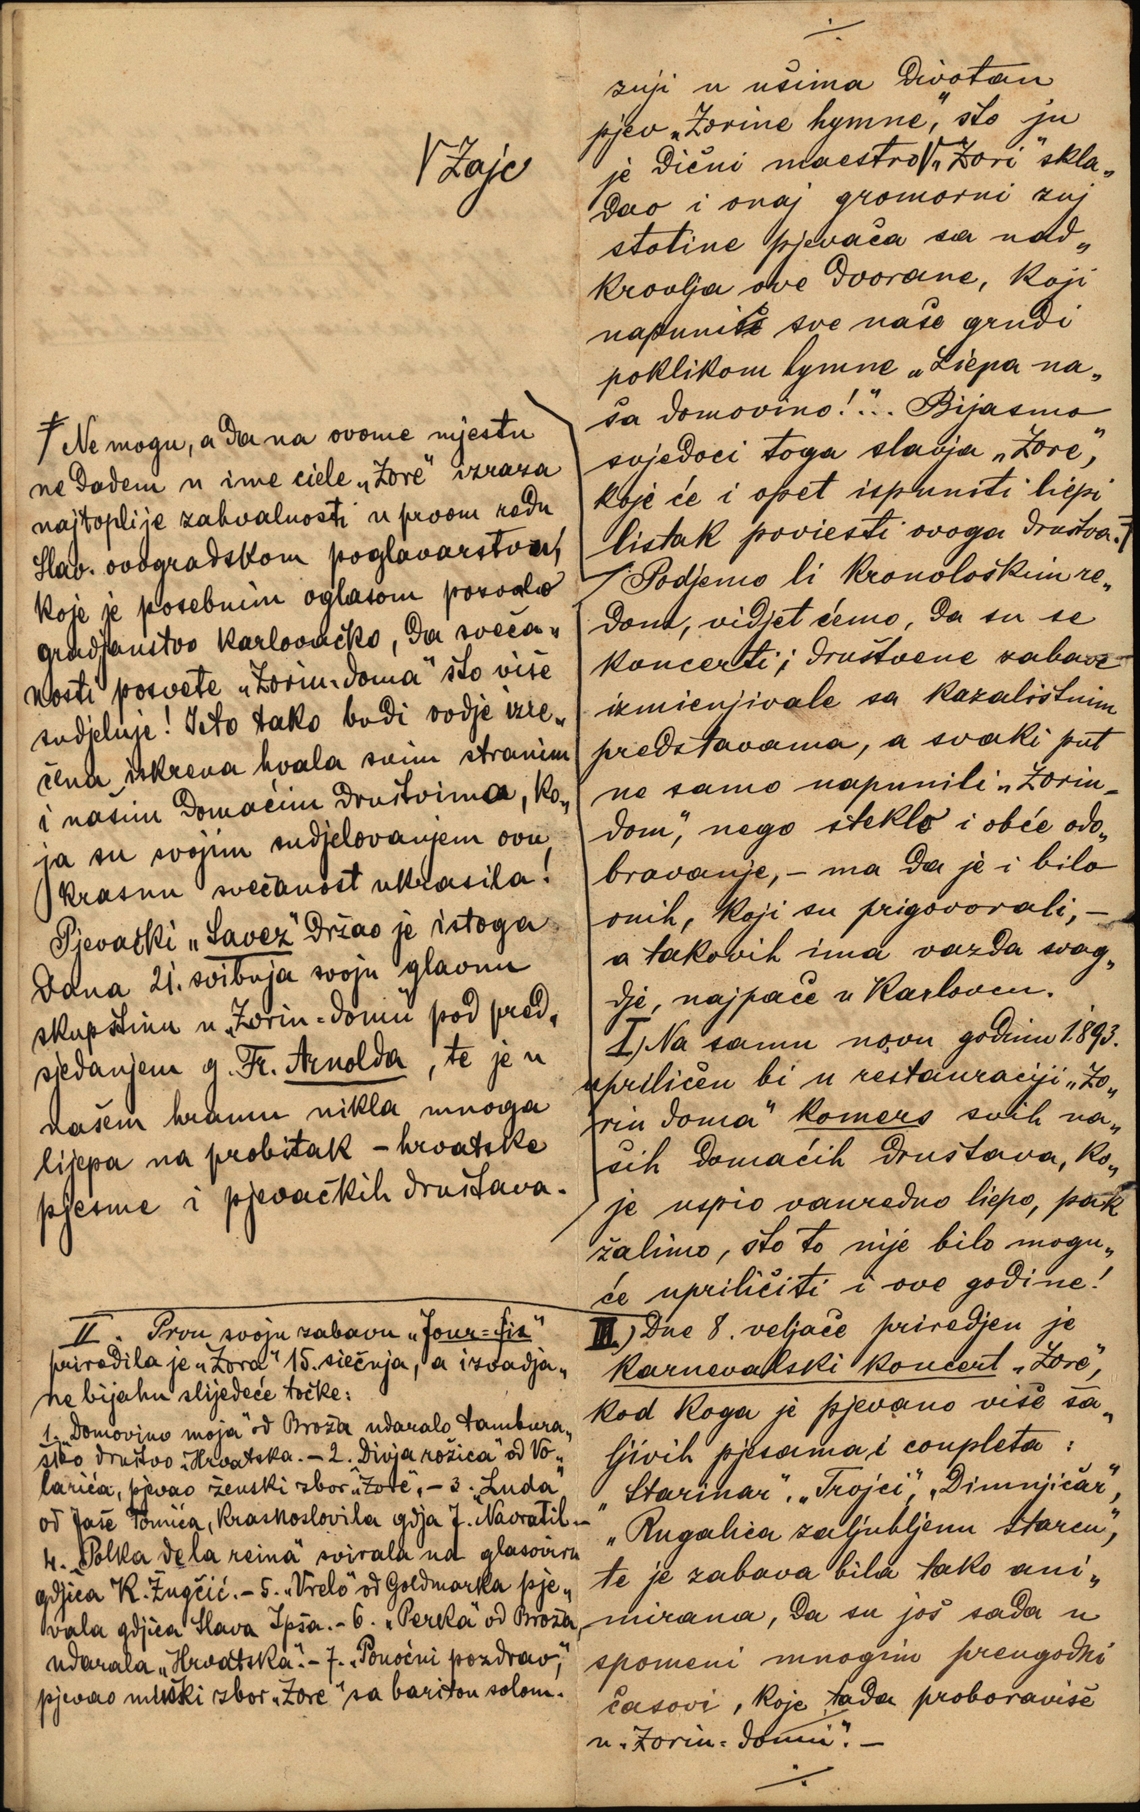 √ Zajc
Ne mogu, a da na ovome mjestu
ne dadem u ime ciele „Zore“ izraza
najtoplije zahvalnosti u prvom redu
slav. ovogradskom poglavarstvu,
koje je posebnim oglasom pozvalo
gradjanstvo karlovačko, da sveča„
nosti posvete „Zorin-doma“ što više
sudjeluje! Isto tako budi ovdje izre„
čena iskrena hvala svim stranim
i našim domaćim društvima, ko„
ja su svojim sudjelovanjem ovu
krasnu svečanost ukrasila!
Pjevački „Savez“ držao je istoga
dana 21. svibnja svoju glavnu
skupštinu u „Zorin-domu“ pod pred„
sjedanjem g. Fr. Arnolda, te je u
našem hramu nikla mnoga
lijepa na probitak – hrvatske
pjesme i pjevačkih društava.
II. Prvu svoju zabavu „Jour=fix“
priredila je „Zora“ 15. siečnja, a izvadja„
ne bijahu slijedeće točke:
1. „Domovino moja“ od Broža udaralo tambura„
ško društvo „Hrvatska. – 2. Divja rožica“ od Vo„
larića, pjevao ženski zbor „Zore“, – 3. „Luda“
od Jaše Tomića, kraskoslovila gdja J. Navratil. –
4. „Polka de la reina“ svirala na glasoviru
gdjica K. Žugčić. – 5. „Vrelo“ od Goldmarka pje„
vala gdjica Slava Ipša. – 6. „Perka“ od Broža,
udarala „Hrvatska“. – 7. „Ponoćni pozdrav“,
pjevao muški zbor „Zore“ sa bariton solom.
zuji u ušima divotan
pjev „Zorine hymne“, što ju
je dični maestro √ „Zori“ skla„
dao i onaj gromorni zuj
stotine pjevača sa nad„
krovlja ove dvorane, koji
napuniše sve naše grudi
poklikom hymne „Liepa na„
ša domovino!“... Bijasmo
svjedoci toga slavja „Zore“,
koje će i opet ispuniti liepi
listak poviesti ovoga društva.
Podjemo li kronološkim re„
dom, vidjet ćemo, da su se
koncerti i društvene zabave
izmienjivale sa kazalištnim
predstavama, a svaki put
ne samo napunili „Zorin-
dom“, nego stekle i obće odo„
bravanje, – ma da je i bilo
onih, koji su prigovorali, –
a takovih ima vazda svag„
dje, najpače u Karlovcu.
I.) Na samu novu godinu 1893.
upriličen bi u restauraciji „Zo„
rin doma“ komers svih na„
ših domaćih društava, ko„
je uspio vanredno liepo, pak
žalimo, što to nije bilo mogu„
će upriličiti i ove godine!
III.) Dne 8. veljače priredjen je
karnevalski koncert „Zore“,
kod koga je pjevano više ša„
ljivih pjesama i coupleta:
„Starinar“, „Trojci“, „Dimnjičar“,
„Rugalica zaljubljenu starcu“,
te je zabava bila tako ani„
mirana, da su još sada u
spomeni mnogim preugodni
časovi, koje tada proboraviše
u „Zorin-domu“. –